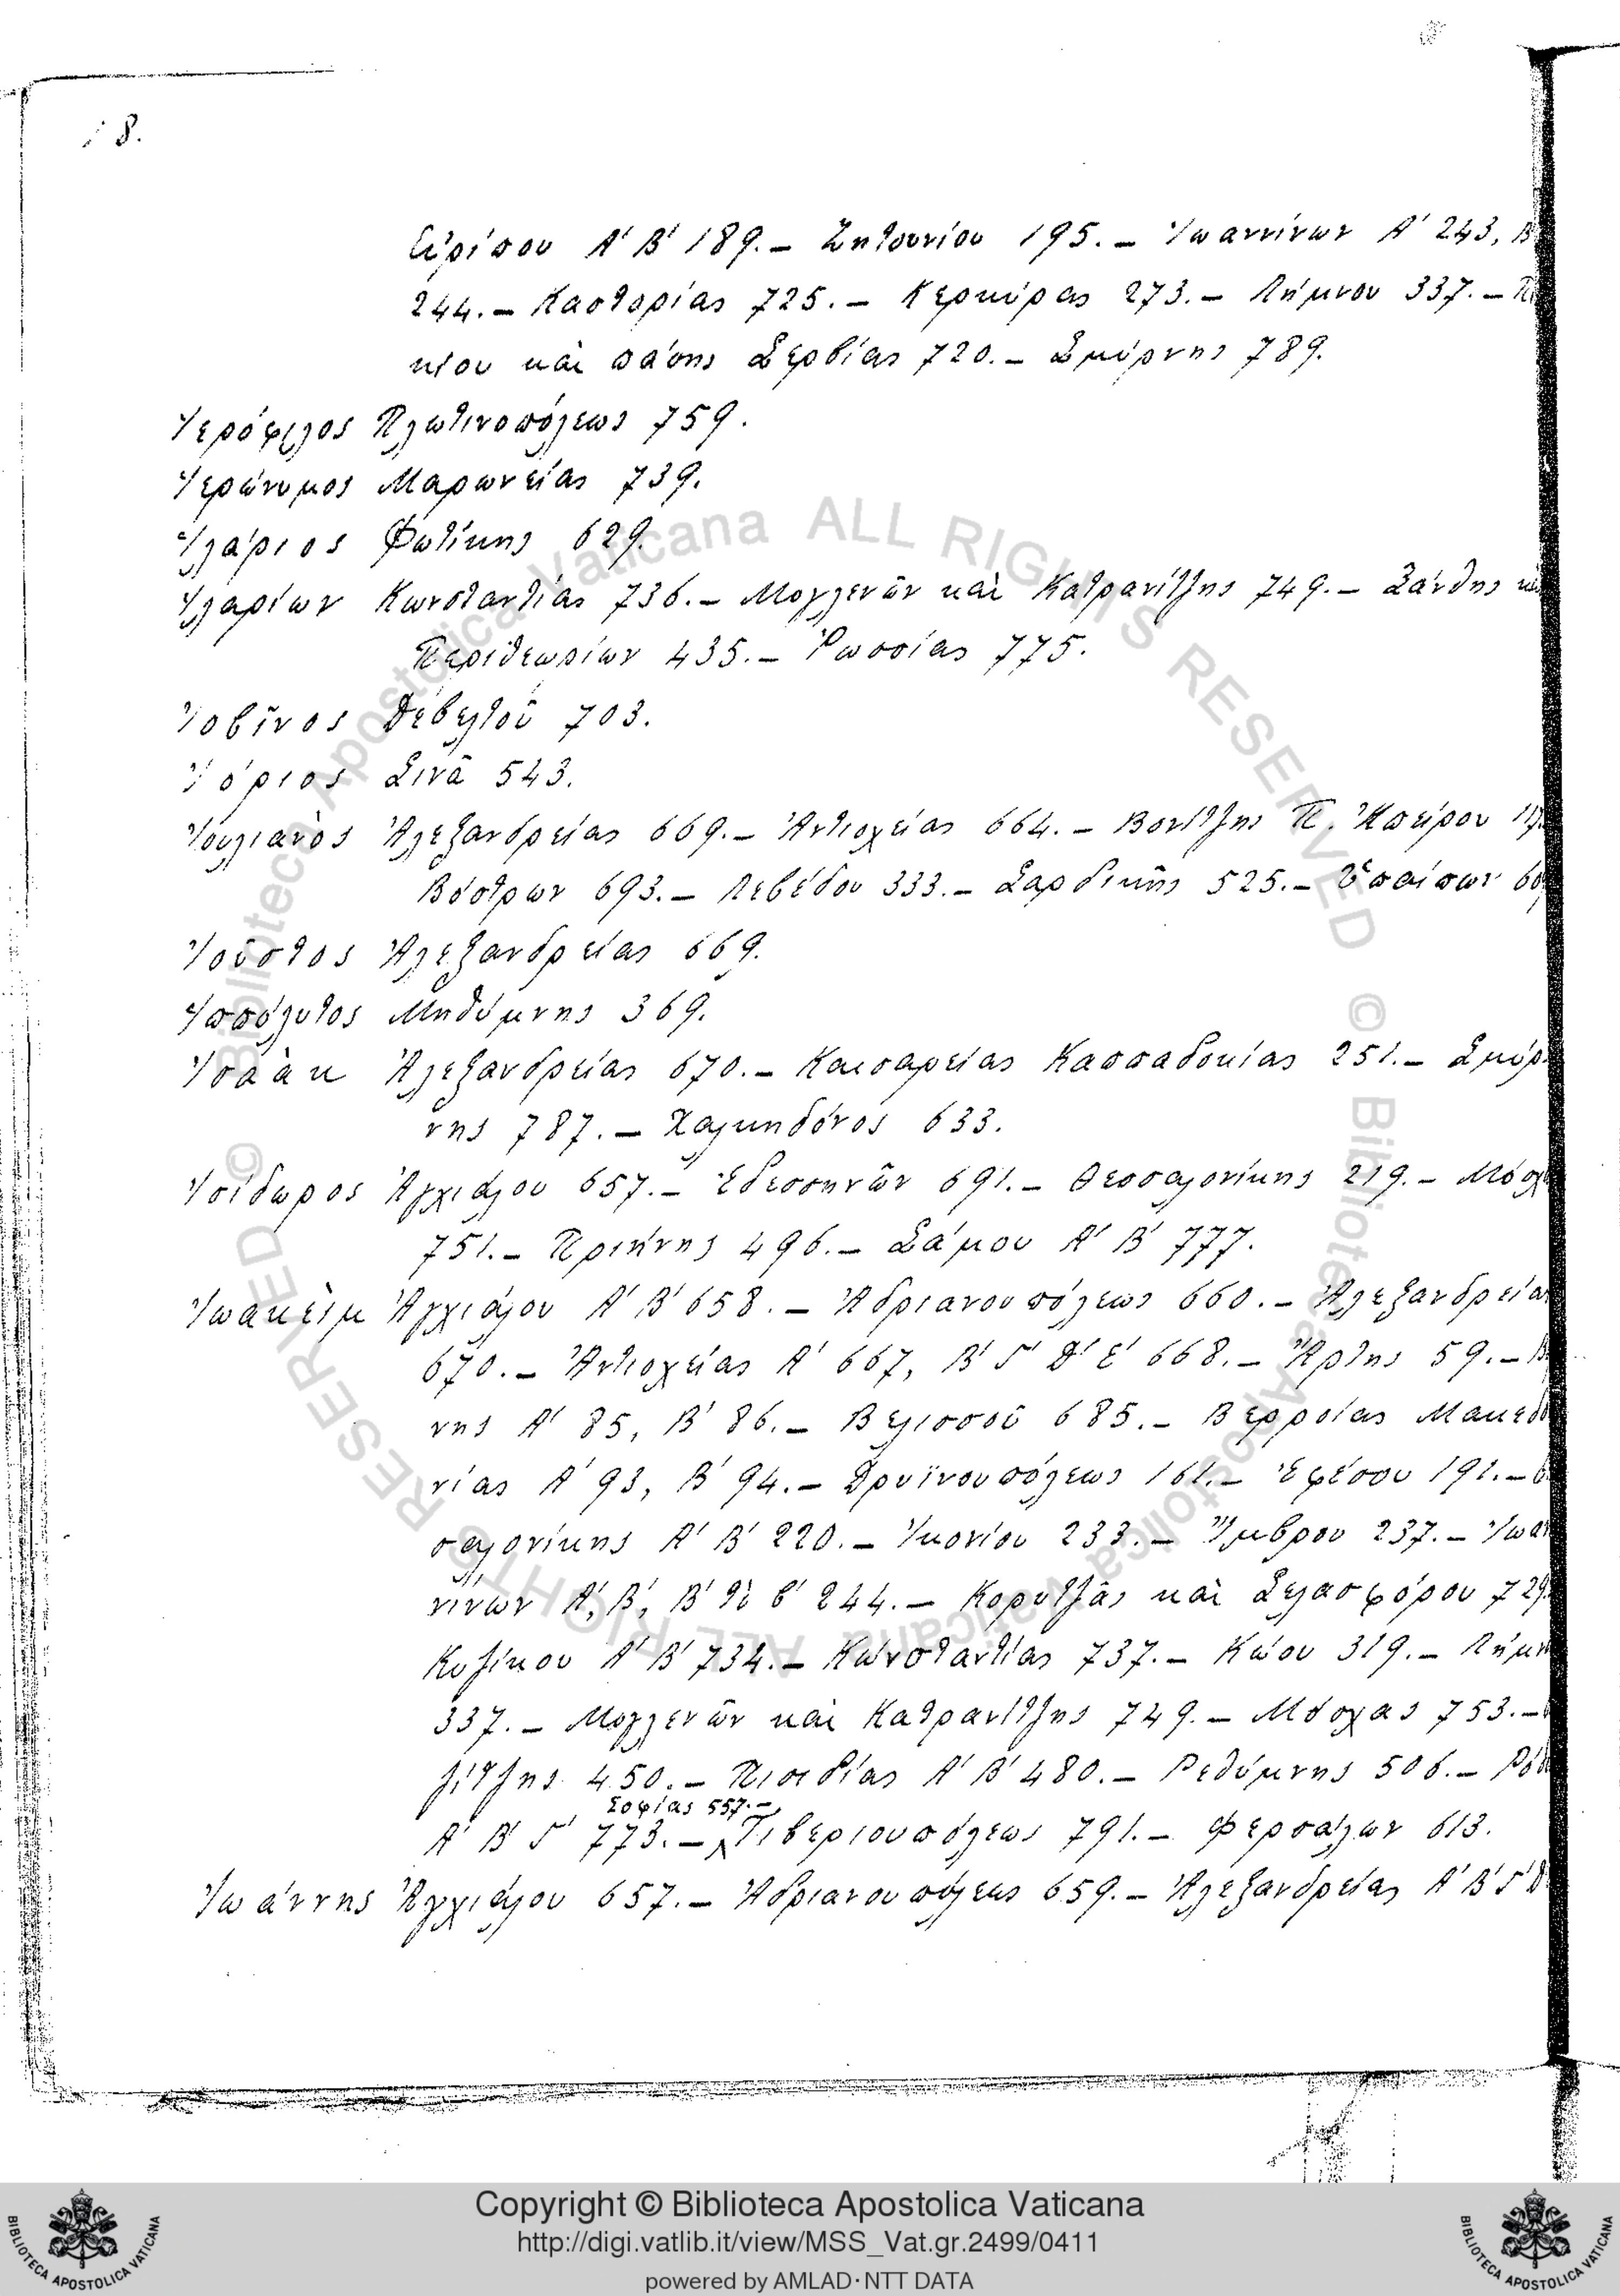 18.
Εὐρίπου Α' Β' 189.— Ζητουνίου 195.— Ἰωαννίνων Α' 243, Β'
244.— Καστορίας 725.— Κερκύρας 273.— Λήμνου 337.—
κίου καὶ πάσης Σερβίας 720.— Σμύρνης 789.
Ἱερόφιλος Πλωτινοπόλεως 759.
Ἱερώνυμος Μαρωνείας 739.
Ἱλάριος Φωτίκης 629.
Ἱλαρίων Κωνσταντίας 736.— Μογλενῶν καὶ Κατρανίτζης 749.— Ξάνθης καὶ
Περιθεωρίων 435.— Ῥωσσίας 775.
Ἰοβῖνος Δεβελτοῦ 703.
Ἰόριος Σινᾶ 543.
Ἰουλιανὸς Ἀλεξανδρείας 669.— Ἀντιοχείας 664.— Βονίτζης Π. Ἠπείρου
Βόστρων 693.— Λεβέδου 333.— Σαρδικῆς 525.— Ὑπαίπων
Ἰοῦστος Ἀλεξανδρείας 669.
Ἱππόλυτος Μηθύμνης 369.
Ἰσαὰκ Ἀλεξανδρείας 670.— Καισαρείας Καππαδοκίας 251.— Σμύρ-
νης 787.— Χαλκηδόνος 633.
Ἰσίδωρος Ἀγχιάλου 657.— Ἐδεσσηνῶν 691.— Θεσσαλονίκης 219.— Μόσχ
751.— Πριήνης 496.— Σάμου Α' Β' 777.
Ἰωακεὶμ Ἀγχιάλου Α' Β' 658.— Ἀδριανουπόλεως 660.— Ἀλεξανδρείας
670.— Ἀντιοχείας Α' 667, Β' Γ' Δ' Ε' 668.— Ἄρτης 59.—
νης Α' 85, Β' 86.— Βελισσοῦ 685.— Βερροίας Μακεδο
νίας Α' 93, Β' 94.— Δρυϊνουπόλεως 161.— Ἐφέσου 191.—
σαλονίκης Α' Β' 220.— Ἰκονίου 233.— Ἴμβρου 237.— Ἰωαν
νίνων Α', Β', Β' τὸ β' 244.— Κορυτζᾶς καὶ Σελασφόρου 729.
Κυζίκου Α' Β' 734.— Κωνσταντίας 737.— Κώου 319.— Λήμν
337.— Μογλενῶν καὶ Κατρανίτζης 749.— Μόσχας 753.—
ζίτζης 450.— Πισιδίας Α' Β' 480.— Ρεθύμνης 506.— Ρόδ
Σοφίας 557.—
Α' Β' Γ' 773.— Τιβεριουπόλεως 791.— Φερσάλων 613.
Ἰωάννης Ἀγχιάλου 657.— Ἀδριανουπόλεως 659.— Ἀλεξανδρείας Α' Β' Γ' Δ'
© Biblioteca Apostolica Vaticana ALL RIGHTS RESERVED
© Biblioteca Apostolica Vaticana ALL RIGHTS RESERVED
Copyright © Biblioteca Apostolica Vaticana
http://digi.vatlib.it/view/MSS_Vat.gr.2499/0411
powered by AMLAD·NTT DATA
BIBLIOTECA APOSTOLICA VATICANA
BIBLIOTECA APOSTOLICA VATICANA